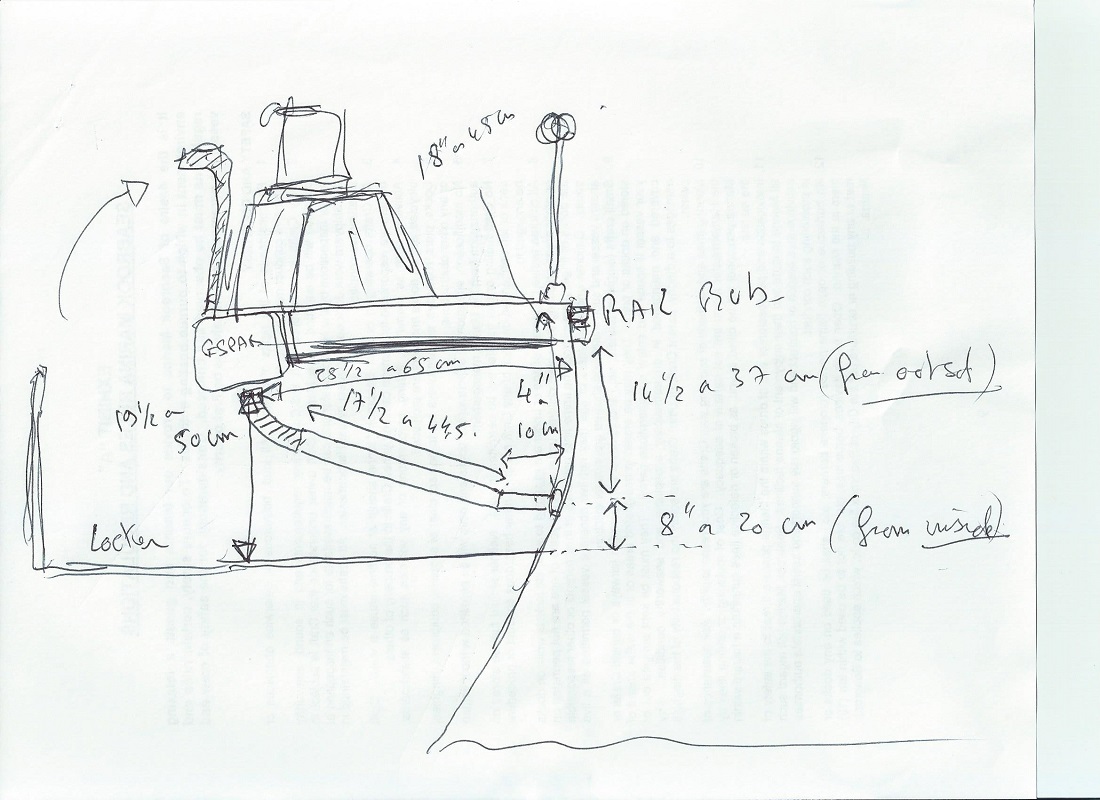 18" a 45 cm
RAIL RUB
ESPAR
25 1/2 a 65 cm
14 1/2 a 37 cm (from outsd)
4" a
10 cm
17 1/2 a 44,5.
19 1/2 a
50 cm
8" a 20 cm (from inside)
Locker